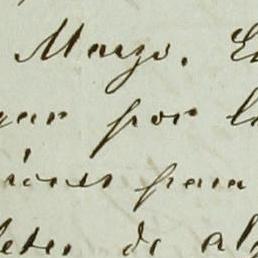 Marzo. E
gar por l
iones para
letes de al